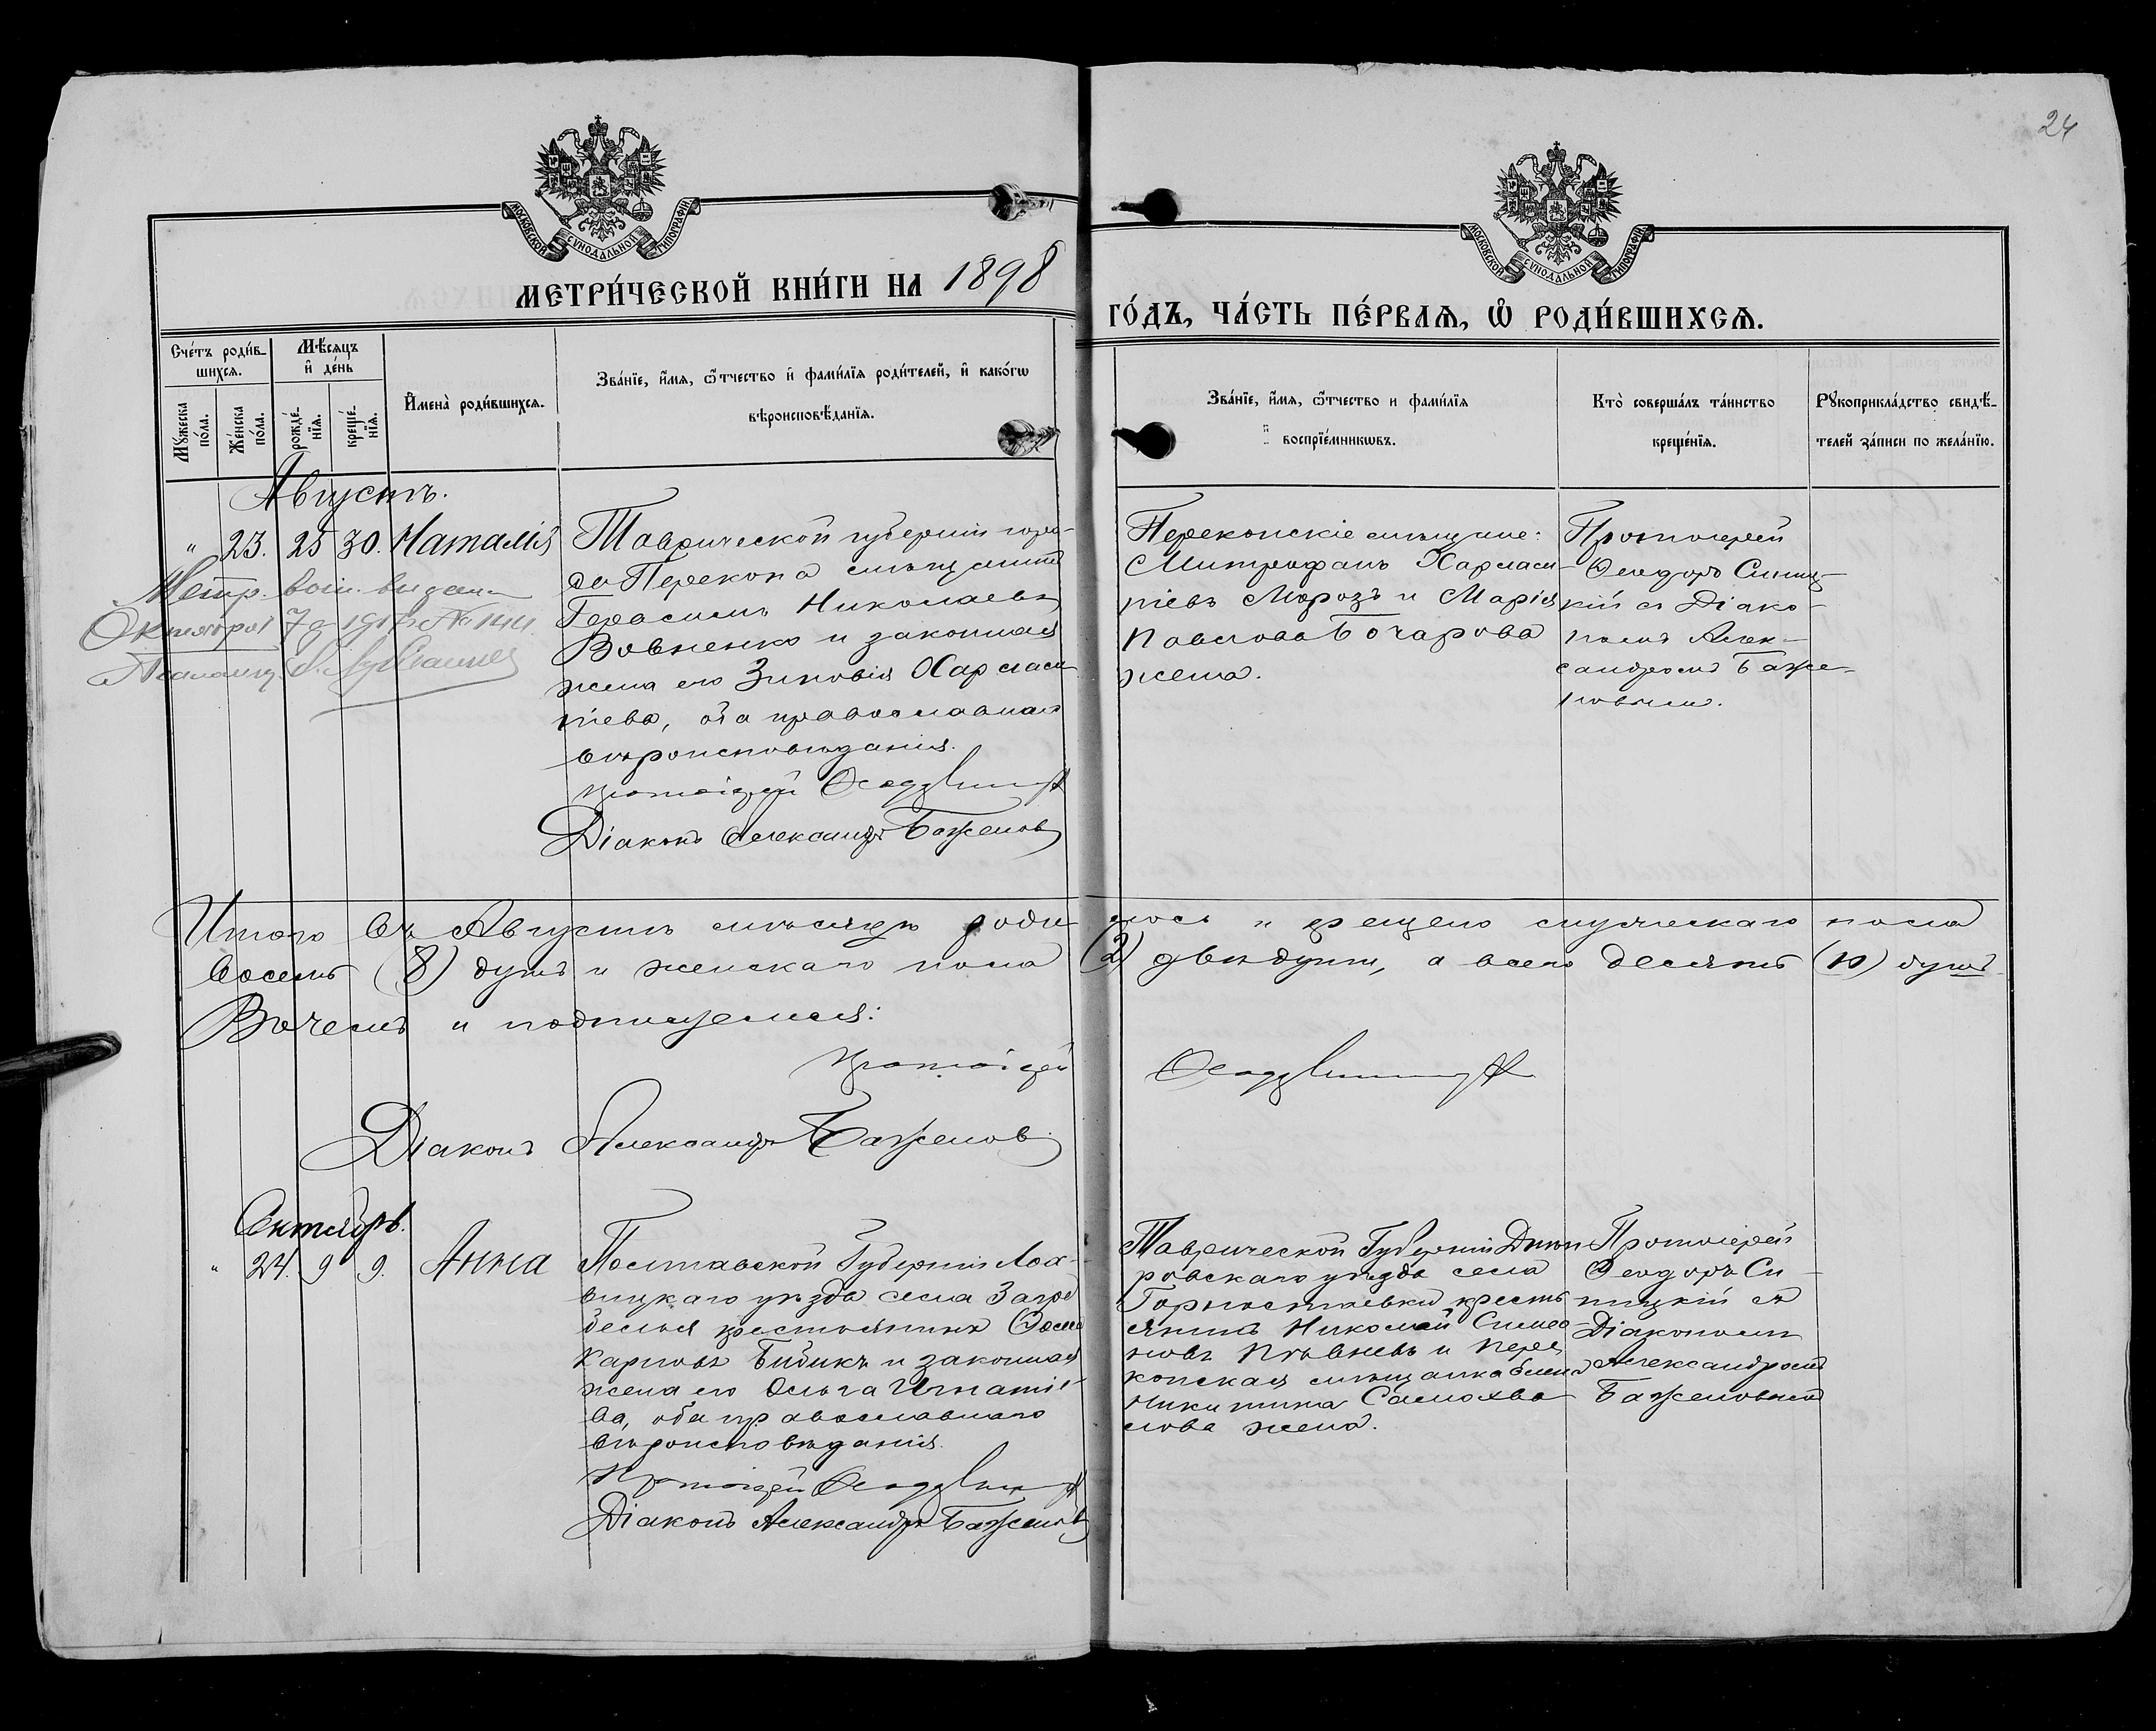 24
МОСКОВСКОЙ СУНОДАЛЬНОЙ ТИПОГРАФІИ
МОСКОВСКОЙ СУНОДАЛЬНОЙ ТИПОГРАФІИ
МЕТРИ́ЧЕСКОЙ КНИ́ГИ НА 1898
ГО́ДЪ, ЧА́СТЬ ПЕ́РВАѦ, Ѡ҆ РОДИ́ВШИХСѦ.
Сче́тъ роди́в-
шихсѧ.
Мѣ́сѧцъ
и҆ де́нь
Мꙋ́жеска
по́ла.
Же́нска
по́ла.
рожде́-
нїѧ.
креще́-
нїѧ.
И҆мена̀ роди́вшихсѧ.
Зва́нїе, и҆́мѧ, ѻ҆́тчество и҆ фами́лїѧ роди́телей, и҆ како́гѡ
вѣроисповѣ́данїѧ.
Зва́нїе, и҆́мѧ, ѻ҆́тчество и фами́лїѧ
воспрїе́мникѡвъ.
Кто̀ соверша́лъ та́инство
креще́нїѧ.
Рꙋкоприкла́дство свидѣ́-
телей за́писи по жела́нїю.
Августъ.
" 23. 25 30. Наталія
Таврической губерніи горо-
да Перекопа мѣщанинъ
Герасимъ Николаевъ
Вовненко и законная
жена его Зиновія Харлам-
піева, оба православнаго
вѣроисповѣданія.
Протоіерей Ѳеодоръ
Діаконъ Александръ Баженовъ
Метр. вып. выдана
Октября 7 д. № 144
Перекопскіе мѣщане:
Митрофанъ Харлам-
піевъ Морозъ и Марія
Павлова Бочарова
жена.
Протоіерей
Ѳеодоръ Синиц-
кій съ Діако-
номъ Алек-
сандромъ Баже-
новымъ.
Итого въ Августѣ мѣсяцѣ роди лось и крещено мужескаго пола
восемь (8) душъ и женскаго пола (2) двѣ души, а всего десять (10) душъ.
Въ чемъ и подпишемся:
Протоіерей Ѳеодоръ
Діаконъ Александръ Баженовъ
Октябрь.
" 24. 9 9. Анна
Полтавской Губерніи Лох-
вицкаго уѣзда села Загре
белья крестьянинъ
Карповъ Бибикъ и законная
жена его Ольга Игнатіе
ва, оба православнаго
вѣроисповѣданія.
Протоіерей Ѳеодоръ
Діаконъ Александръ Баженовъ
Таврической Губерніи Днѣп
ровскаго уѣзда села
Горностаевки кресть
янинъ Николай Симео-
новъ и Пере
копская мѣщанка
Никитина Самохва
лова жена.
Протоіерей
Ѳеодоръ Си-
ницкій съ
Діакономъ
Александромъ
Баженовымъ